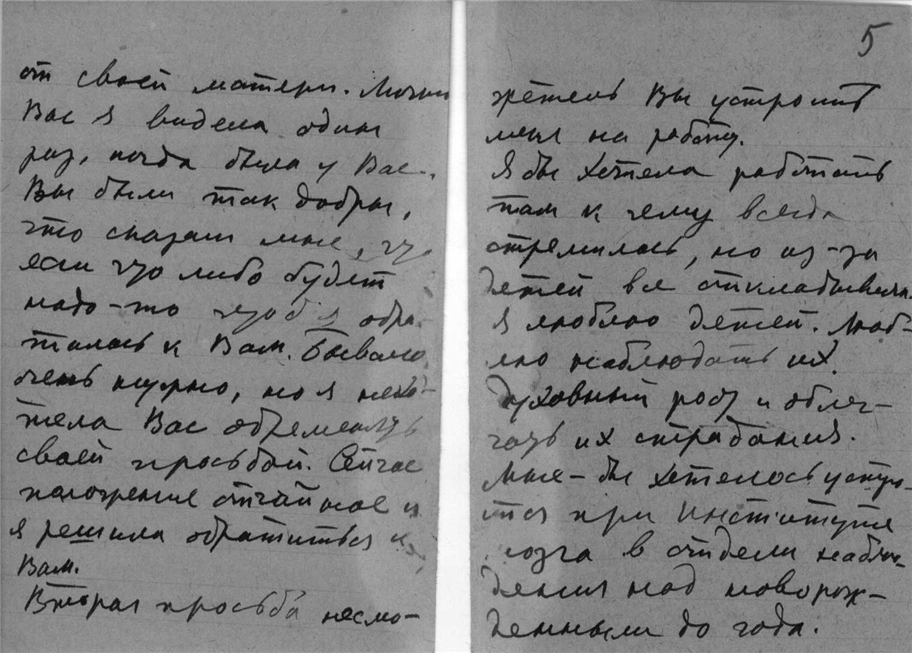 от своей матери. Лично
Вас я видела один
раз, когда была у Вас.
Вы были так добры,
что сказали мне, что
если что либо будет
надо-то чтоб я обра-
тилась к Вам. Бывало
очень нужно, но я не хо-
тела Вас обременять
своей просьбой. Сейчас
положение отчайное и
я решила обратиться к
Вам.
Вторая просьба несмо-
5
жетель Вы устроить
меня на работу.
Я бы хотела работать
там к чему всегда
стремилась, но из-за
детей все откладывала.
Я люблю детей. Люб-
лю наблюдать их
духовный рост и облег-
чать их страдания.
Мне-бы хотелось устро-
ится при Институте
мозга в отделе наблю-
дения над новорож-
денными до года.